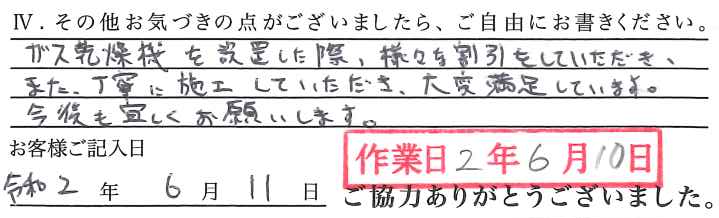 Ⅳ．その他お気づきの点がございましたら、ご自由にお書きください。
ガス乾燥機を設置した際、様々な割引をしていただき、
また、丁寧に施工していただき、大変満足しています。
今後も宜しくお願いします。
お客様ご記入日
作業日2年6月10日
令和2年6月11日
ご協力ありがとうございました。